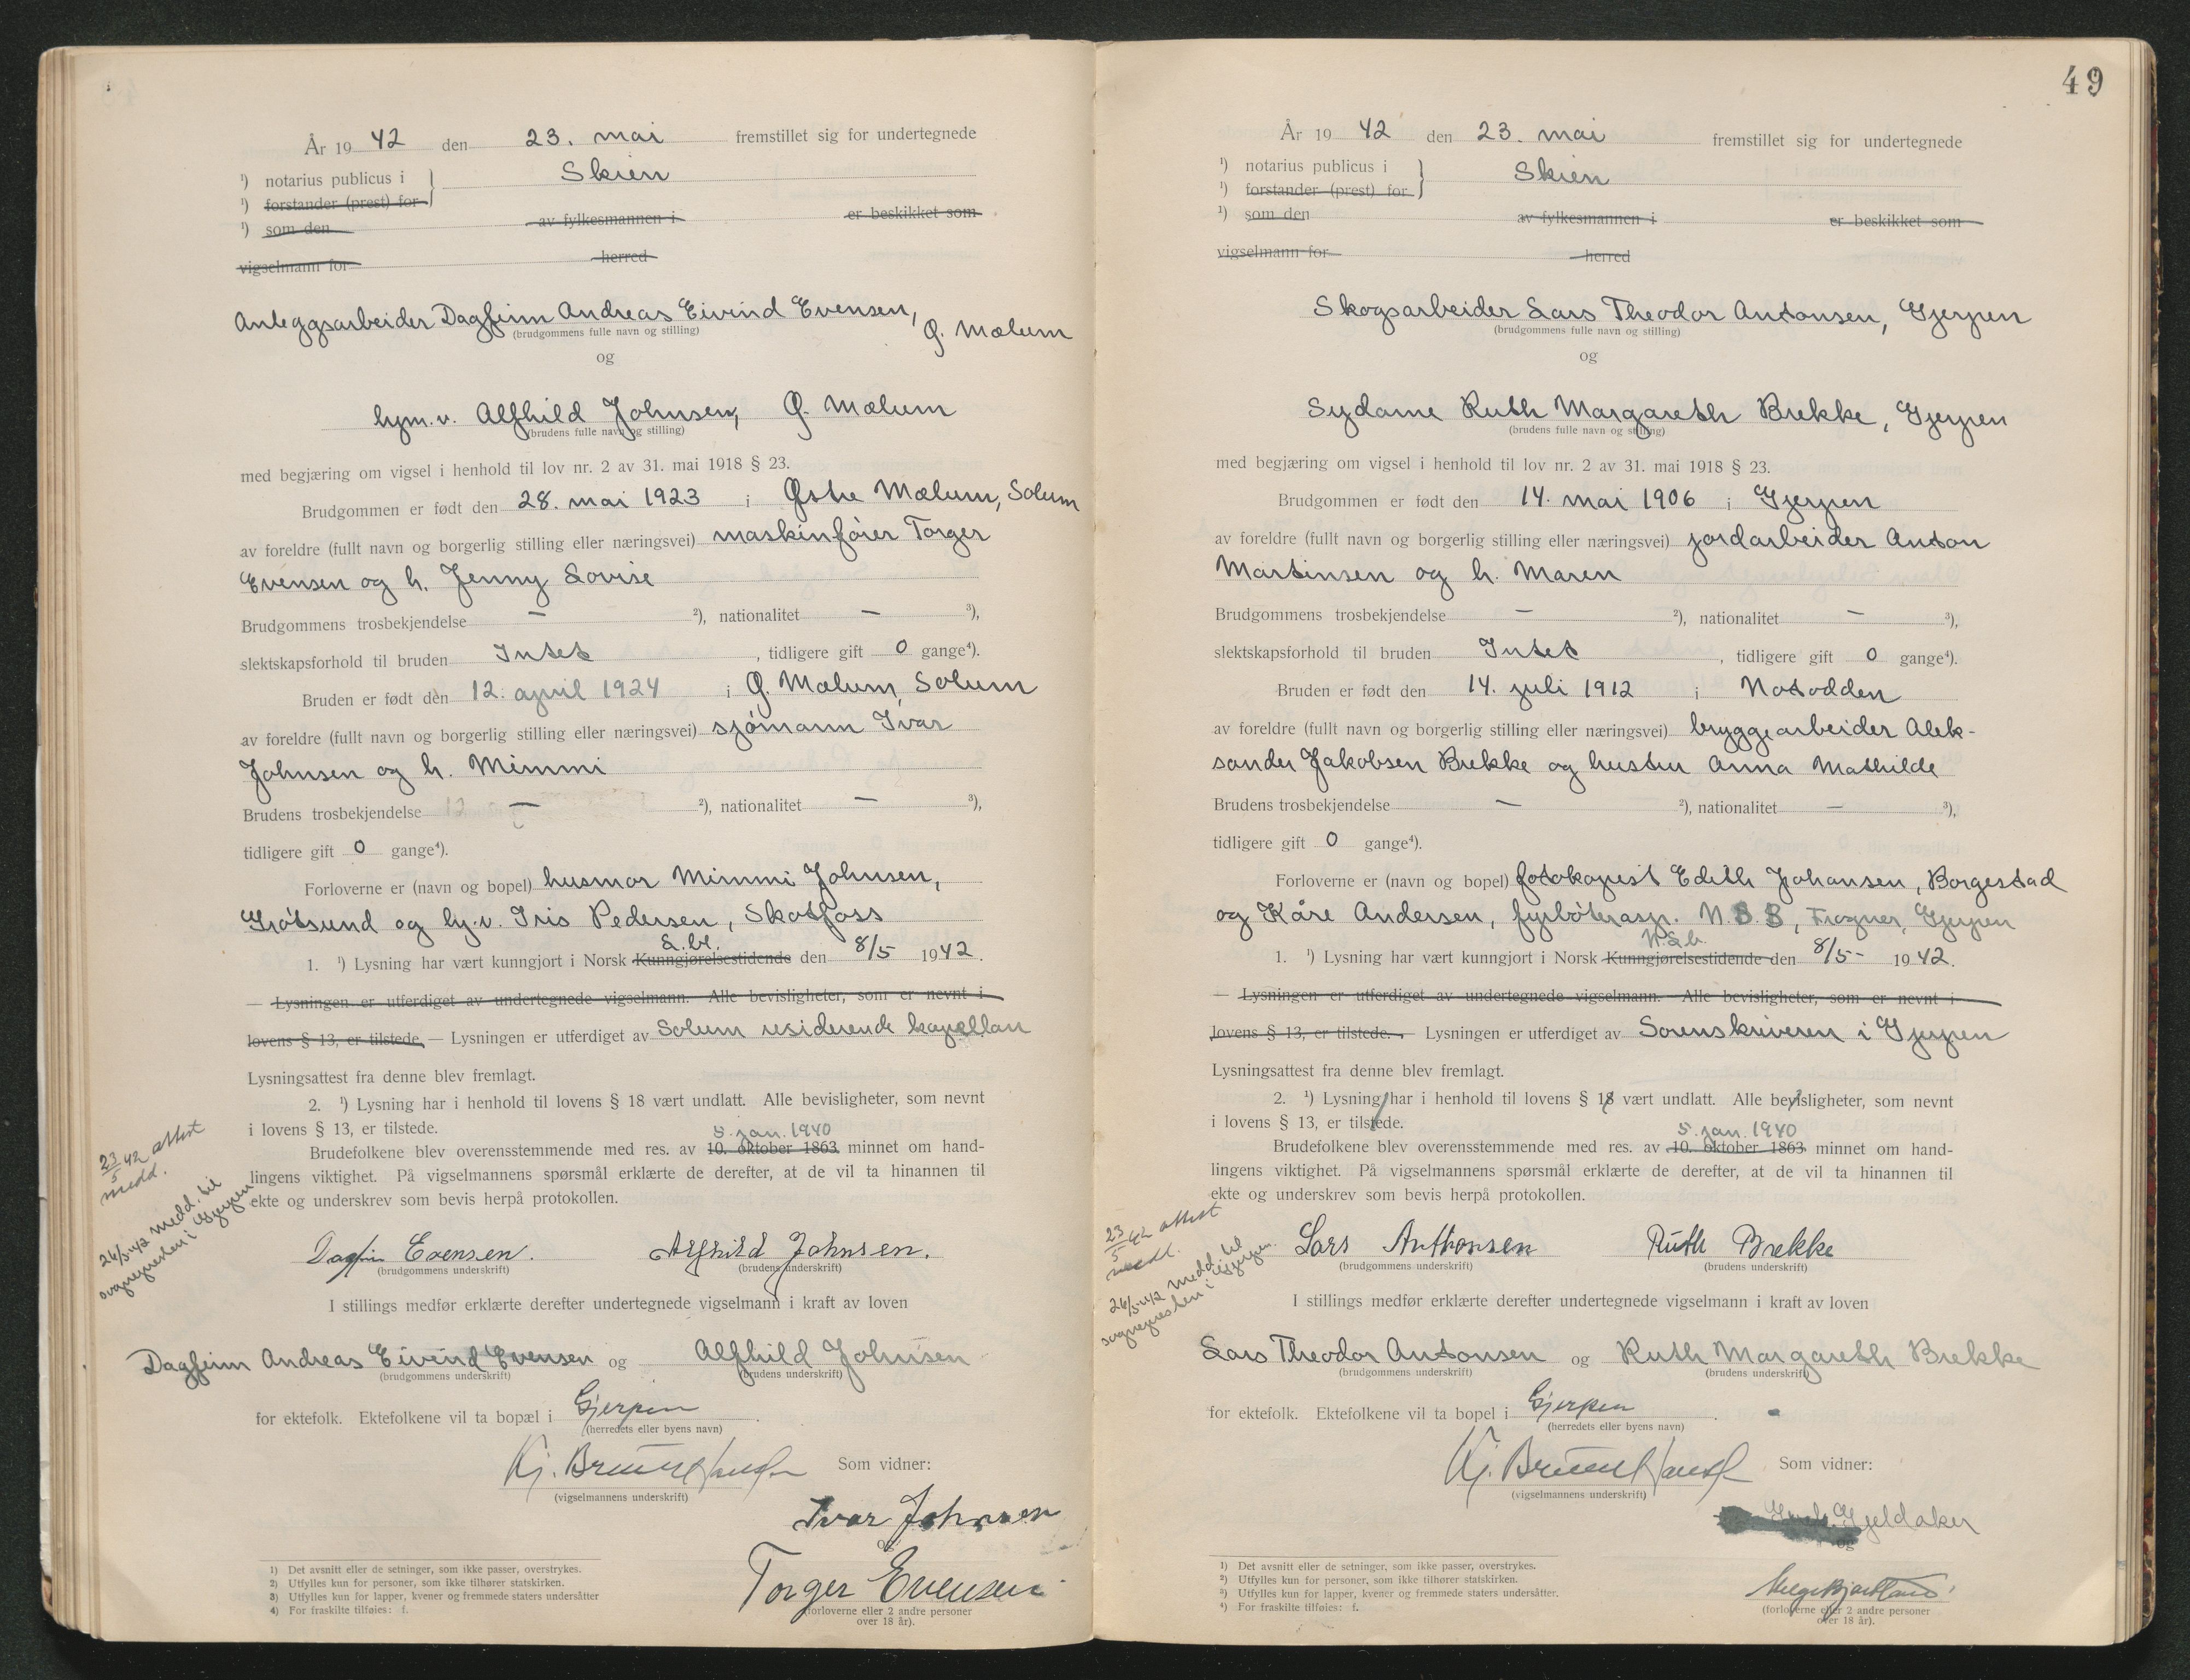 År 19 42 den 23. mai fremstillet sig for undertegnede
¹) notarius publicus i Skien
¹) forstander (prest) for
¹) som den av fylkesmannen i er beskikket som
vigselmann for herred
Anleggsarbeider Dagfinn Andreas Eivind Evensen, Ø. Mælum
(brudgommens fulle navn og stilling)
og
hjm.v. Alfhild Johnsen, Ø. Mælum
(brudens fulle navn og stilling)
med begjæring om vigsel i henhold til lov nr. 2 av 31. mai 1918 § 23.
Brudgommen er født den 28. mai 1923 i Østre Mælum, Solum
av foreldre (fullt navn og borgerlig stilling eller næringsvei) maskinfører Torger
Evensen og h. Jenny Lovise
Brudgommens trosbekjendelse — ²), nationalitet — ³),
slektskapsforhold til bruden Intet, tidligere gift 0 gange⁴).
Bruden er født den 12. april 1924 i Ø. Mælum, Solum
av foreldre (fullt navn og borgerlig stilling eller næringsvei) sjømann Ivar
Johnsen og h. Mimmi
Brudens trosbekjendelse — ²), nationalitet — ³),
tidligere gift 0 gange⁴).
Forloverne er (navn og bopel) husmor Mimmi Johnsen,
Gråtsund og hj.v. Iris Pedersen, Skotfoss
L.bl.
1. ¹) Lysning har vært kunngjort i Norsk Kunngjørelsestidende den 8/5 1942.
— Lysningen er utferdiget av undertegnede vigselmann. Alle bevisligheter, som er nevnt i
lovens § 13, er tilstede. — Lysningen er utferdiget av Solum residerende kapellan
Lysningsattest fra denne blev fremlagt.
2. ¹) Lysning har i henhold til lovens § 18 vært undlatt. Alle bevisligheter, som nevnt
i lovens § 13, er tilstede.
5. jan. 1940
Brudefolkene blev overensstemmende med res. av 10. oktober 1863 minnet om hand-
lingens viktighet. På vigselmannens spørsmål erklærte de derefter, at de vil ta hinannen til
ekte og underskrev som bevis herpå protokollen.
23/5 42 attest
medd.
26/5-42 medd. til
sognepresten i Gjerpen
Dagfin Evensen. Alfhild Johnsen.
(brudgommens underskrift) (brudens underskrift)
I stillings medfør erklærte derefter undertegnede vigselmann i kraft av loven
Dagfinn Andreas Eivind Evensen og Alfhild Johnsen
(brudgommens underskrift) (brudens underskrift)
for ektefolk. Ektefolkene vil ta bopæl i Gjerpen.
(herredets eller byens navn)
Som vidner:
(vigselmannens underskrift)
Ivar Johnsen
og
Torger Evensen
(forloverne eller 2 andre personer
over 18 år).
1) Det avsnitt eller de setninger, som ikke passer, overstrykes.
2) Utfylles kun for personer, som ikke tilhører statskirken.
3) Utfylles kun for lapper, kvener og fremmede staters undersåtter
4) For fraskilte tilføies: f.
49
År 19 42 den 23. mai fremstillet sig for undertegnede
¹) notarius publicus i Skien
¹) forstander (prest) for
¹) som den av fylkesmannen i er beskikket som
vigselmann for herred
Skogsarbeider Lars Theodor Antonsen, Gjerpen
(brudgommens fulle navn og stilling)
og
Sydame Ruth Margareth Brekke, Gjerpen
(brudens fulle navn og stilling)
med begjæring om vigsel i henhold til lov nr. 2 av 31. mai 1918 § 23.
Brudgommen er født den 14. mai 1906 i Gjerpen
av foreldre (fullt navn og borgerlig stilling eller næringsvei) jordarbeider Anton
Martinsen og h. Maren
Brudgommens trosbekjendelse — ²), nationalitet — ³),
slektskapsforhold til bruden Intet, tidligere gift 0 gange⁴).
Bruden er født den 14. juli 1912 i Notodden
av foreldre (fullt navn og borgerlig stilling eller næringsvei) bryggearbeider Alek-
sander Jakobsen Brekke og hustru Anna Mathilde
Brudens trosbekjendelse — ²), nationalitet — ³),
tidligere gift 0 gange⁴).
Forloverne er (navn og bopel) fotokopist Edith Johansen, Borgestad
og Kåre Andersen, fyrbøterasp. N.S.B, Frogner, Gjerpen
N.L.b.
1. ¹) Lysning har vært kunngjort i Norsk Kunngjørelsestidende den 8/5- 1942.
— Lysningen er utferdiget av undertegnede vigselmann. Alle bevisligheter, som er nevnt i
lovens § 13, er tilstede. — Lysningen er utferdiget av Sorenskriveren i Gjerpen
Lysningsattest fra denne blev fremlagt.
2. ¹) Lysning har i henhold til lovens § 18 vært undlatt. Alle bevisligheter, som nevnt
i lovens § 13, er tilstede.
5. jan. 1940
Brudefolkene blev overensstemmende med res. av 10. oktober 1863 minnet om hand-
lingens viktighet. På vigselmannens spørsmål erklærte de derefter, at de vil ta hinannen til
ekte og underskrev som bevis herpå protokollen.
23/5 42 attest
medd.
26/5-42 medd. til
sognepresten i Gjerpen.
Lars Anthonsen Ruth Brekke
(brudgommens underskrift) (brudens underskrift)
I stillings medfør erklærte derefter undertegnede vigselmann i kraft av loven
Lars Theodor Antonsen og Ruth Margareth Brekke
(brudgommens underskrift) (brudens underskrift)
for ektefolk. Ektefolkene vil ta bopel i Gjerpen.
(herredets eller byens navn)
Som vidner:
(vigselmannens underskrift)
Gjeldaker
og
(forloverne eller 2 andre personer
over 18 år).
1) Det avsnitt eller de setninger, som ikke passer, overstrykes.
2) Utfylles kun for personer, som ikke tilhører statskirken.
3) Utfylles kun for lapper, kvener og fremmede staters undersåtter.
4) For fraskilte tilføies: f.